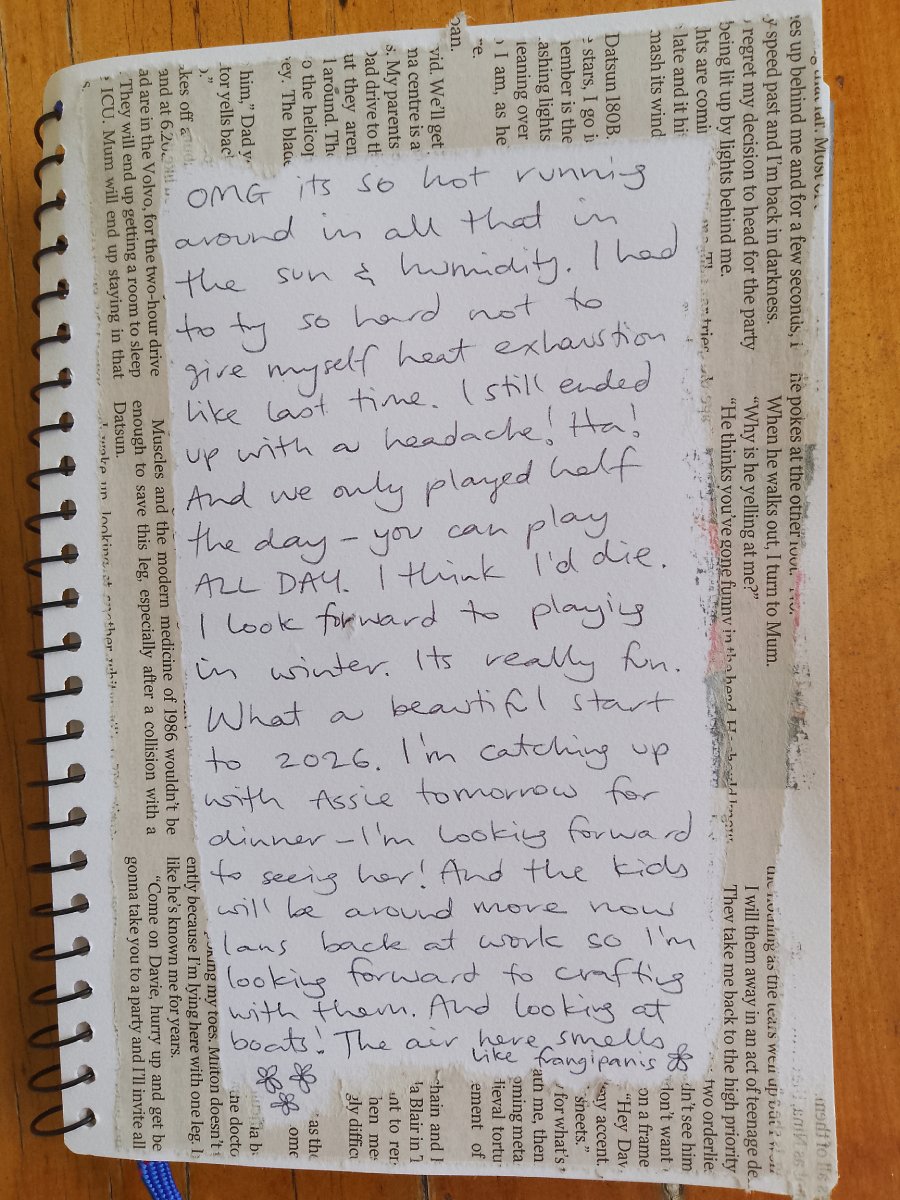 OMG its so hot running
around in all that in
the sun & humidity. I had
to try so hard not to
give myself heat exhaustion
like last time. I still ended
up with a headache! Ha!
And we only played half
the day – you can play
ALL DAY. I think I'd die.
I look forward to playing
in winter. Its really fun.
What a beautiful start
to 2026. I'm catching up
with Assie tomorrow for
dinner – I'm looking forward
to seeing her! And the kids
will be around more now
Ians back at work so I'm
looking forward to crafting
with them. And looking at
boats! The air here smells
like frangipanis
up behind me and for a few seconds,
speed past and I'm back in darkness.
regret my decision to head for the party
being lit up by lights behind me.
are
late and it
its
Datsun 180B.
stars, I go
is the
lights
leaning over
I am, as he
We'll get
centre is a
My parents
Dad drive to
they
around.
the
The
him," Dad
yells
off
and at
are in the Volvo, for the two-hour drive
They will end up getting a room to sleep
ICU. Mum will end up staying in that
pokes at the other
When he walks out, I turn to Mum.
"Why is he yelling at me?"
"He thinks you've gone funny in the head.
Muscles and the modern medicine of 1986 wouldn't be
enough to save this leg, especially after a collision with a
Datsun.
as the tears
I will them away in an act of teenage
They take me back to the high priority
two
see him
want
on a frame
"Hey
accent.
for what's
me, then
of
and I
Blair in
to
as the
the
my toes. Milton doesn't
because I'm lying here with one leg.
like he's known me for years.
"Come on Davie, hurry up and get be
gonna take you to a party and I'll invite all